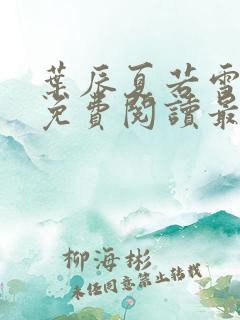 葉辰夏若雪
免費閱讀最
柳海彬
未經同意禁止轉載